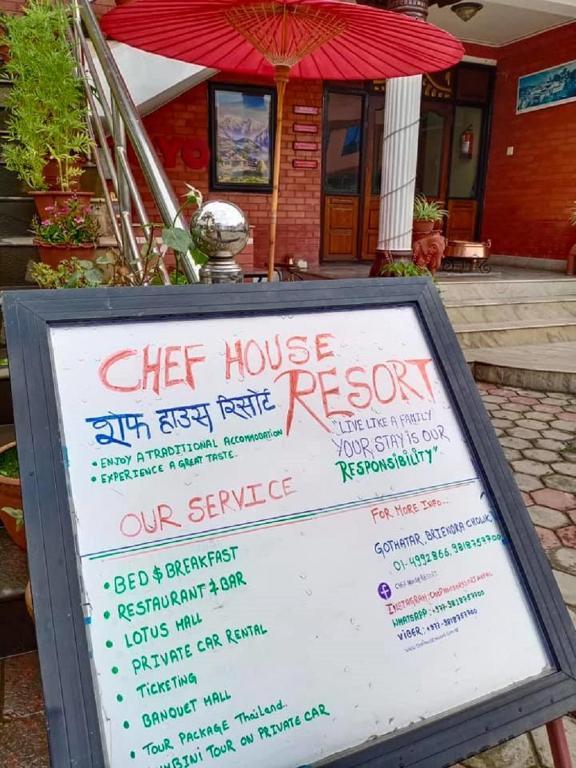 CHEF HOUSE
RESORT
शेफ हाउस रिसोर्ट
• ENJOY A TRADITIONAL ACCOMMODATION
• EXPERIENCE A GREAT TASTE.
"LIVE LIKE A FAMILY
YOUR STAY IS OUR
RESPONSIBILITY"
OUR SERVICE
• BED $ BREAKFAST
• RESTAURANT & BAR
• LOTUS HALL
• PRIVATE CAR RENTAL
• TICKETING
• BANQUET HALL
• TOUR PACKAGE Thailand.
TOUR ON PRIVATE CAR
FOR MORE INFO...
GOTHATAR, BRIENDRA CHOWK
01-4992866, 9818757700
CHEF HOUSE RESORT
INSTAGRAM:
WHATSAPP: +977-9818757700
VIBER: +977-9818757700